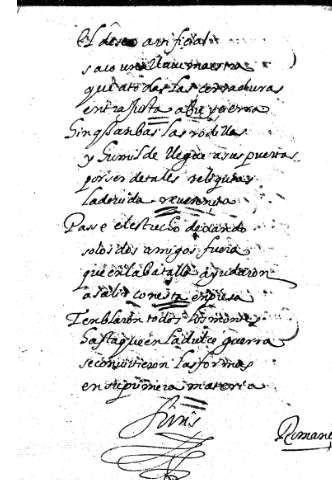 El deseo artificial
saco una llaue maestra
que a todas las cerraduras
entra justa abre y cierra
hinque ambas las rodillas
y humilde llegue a sus puertas
por ser de tales reliquias
la deuida reuerencia
Passe el estrecho dexando
solos dos amigos fuera
que en la batalla ayudaron
a salir con esta enpresa
Tenblaron todos los montes
hasta que en la dulce guerra
se conuirtieron las formas
en su primera materia
finis
Romance